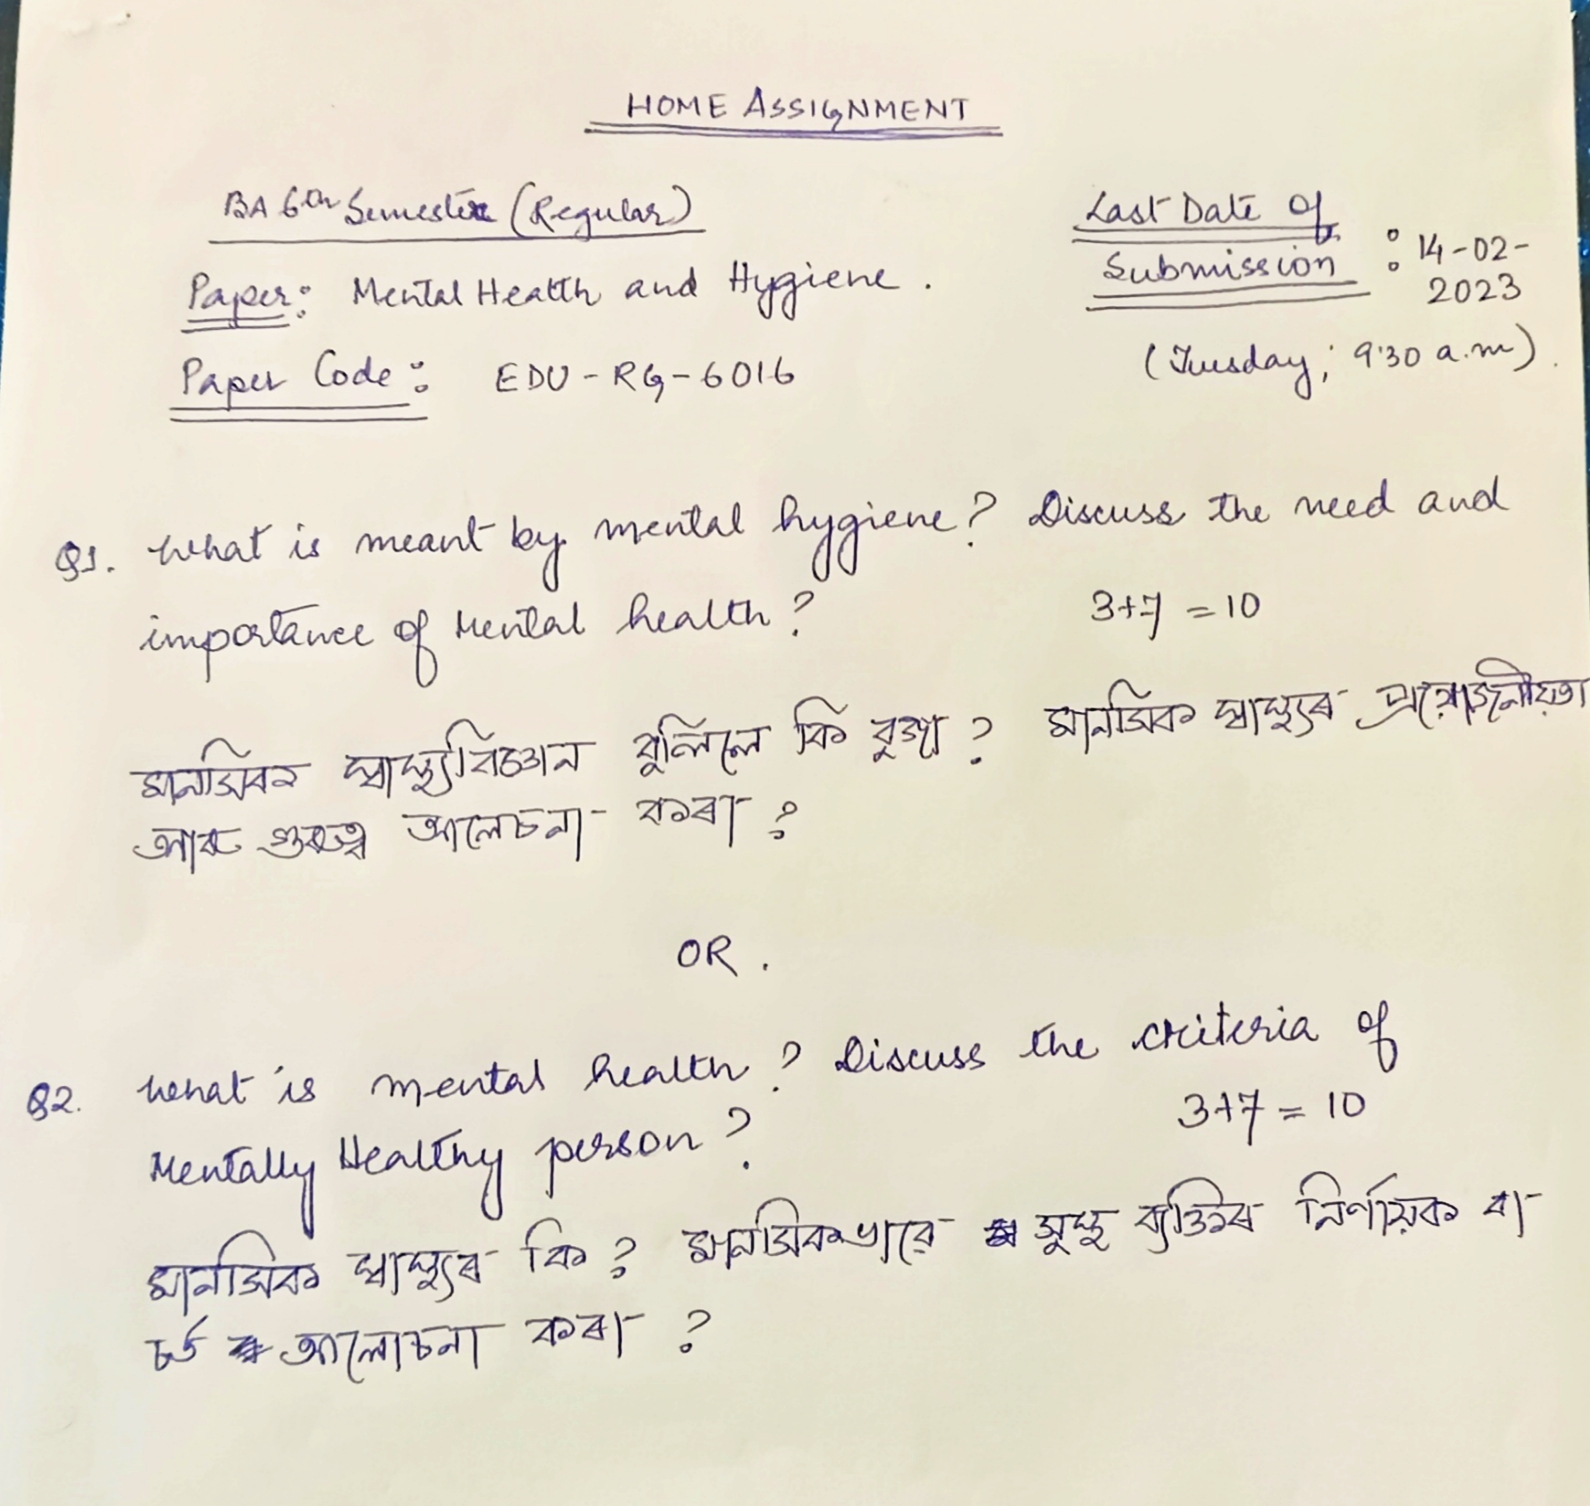 HOME ASSIGNMENT
BA 6th Semester (Regular)
Paper: Mental Health and Hygiene.
Paper Code: EDU-RG-6016
Last Date of
Submission : 14-02-
2023
(Tuesday; 9:30 a.m).
Q1. What is meant by mental hygiene? Discuss the need and
importance of Mental health?
3+7 = 10
মানসিক স্বাস্থ্যবিজ্ঞান বুলিলে কি বুজা? মানসিক স্বাস্থ্যৰ প্ৰয়োজনীয়তা
আৰু গুৰুত্ব আলোচনা কৰা?
OR.
Q2. What is mental health? Discuss the criteria of
Mentally Healthy person?
3+7 = 10
মানসিক স্বাস্থ্যৰ কি? মানসিকভাৱে সুস্থ ব্যক্তিৰ নিৰ্ণায়ক বা
চৰ্ত আলোচনা কৰা?